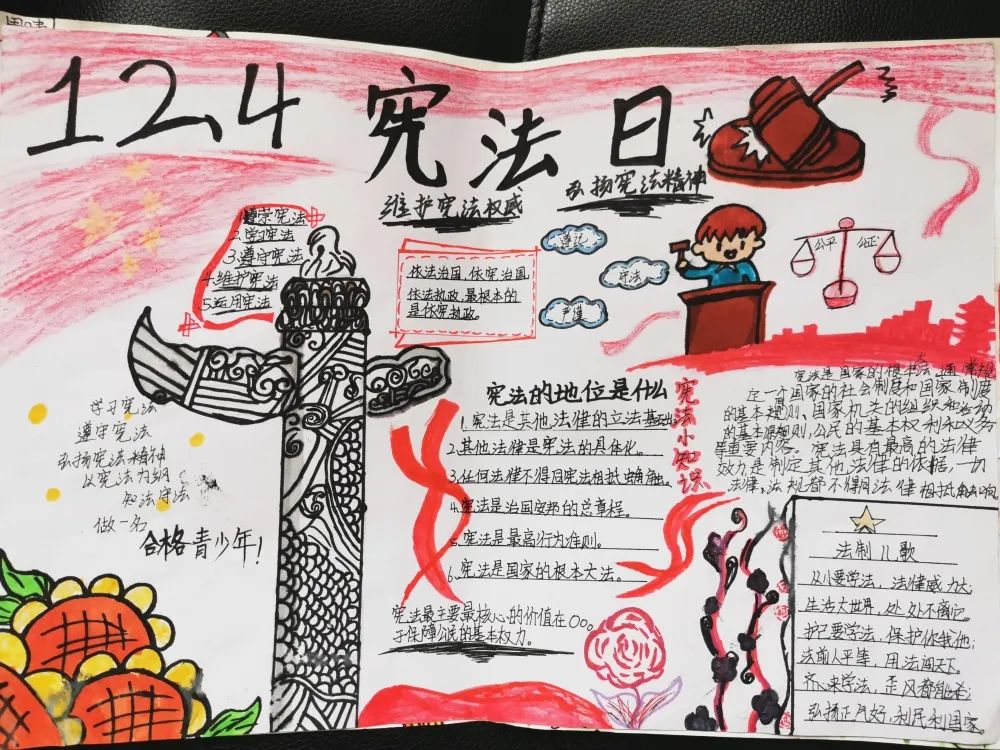 12.4 宪法日
维护宪法权威
弘扬宪法精神
1.尊崇宪法
2.学习宪法
3.遵守宪法
4.维护宪法
5.运用宪法
依法治国,依宪治国
依法执政,最根本的
是依宪执政。
谨记
守法
严谨
公平
公正
学习宪法
遵守宪法
弘扬宪法精神
以宪法为纲
知法守法
做一名
合格青少年!
宪法的地位是什么
1.宪法是其他法律的立法基础。
2.其他法律是宪法的具体化。
3.任何法律不得同宪法相抵触。
4.宪法是治国安邦的总章程。
5.宪法是最高行为准则。
6.宪法是国家的根本大法。
宪法最主要最核心的价值在
于保障公民的基本权力。
宪法小知识
宪法是国家的根本大法,通常规
定一个国家的社会制度和国家制度
的基本规则、国家机关的组织和活动
的基本原则,公民的基本权利和义务
等重要内容。宪法具有最高的法律
效力是制定其他法律的依据,一切
法律、法规都不得同法律相抵触
法制儿歌
从小要学法,法律威力大;
生活大世界,处处不离它。
护己要学法,保护你我他;
法前人平等,用法闯天下。
齐来学法,歪风都能
弘扬正气好,利民利国家